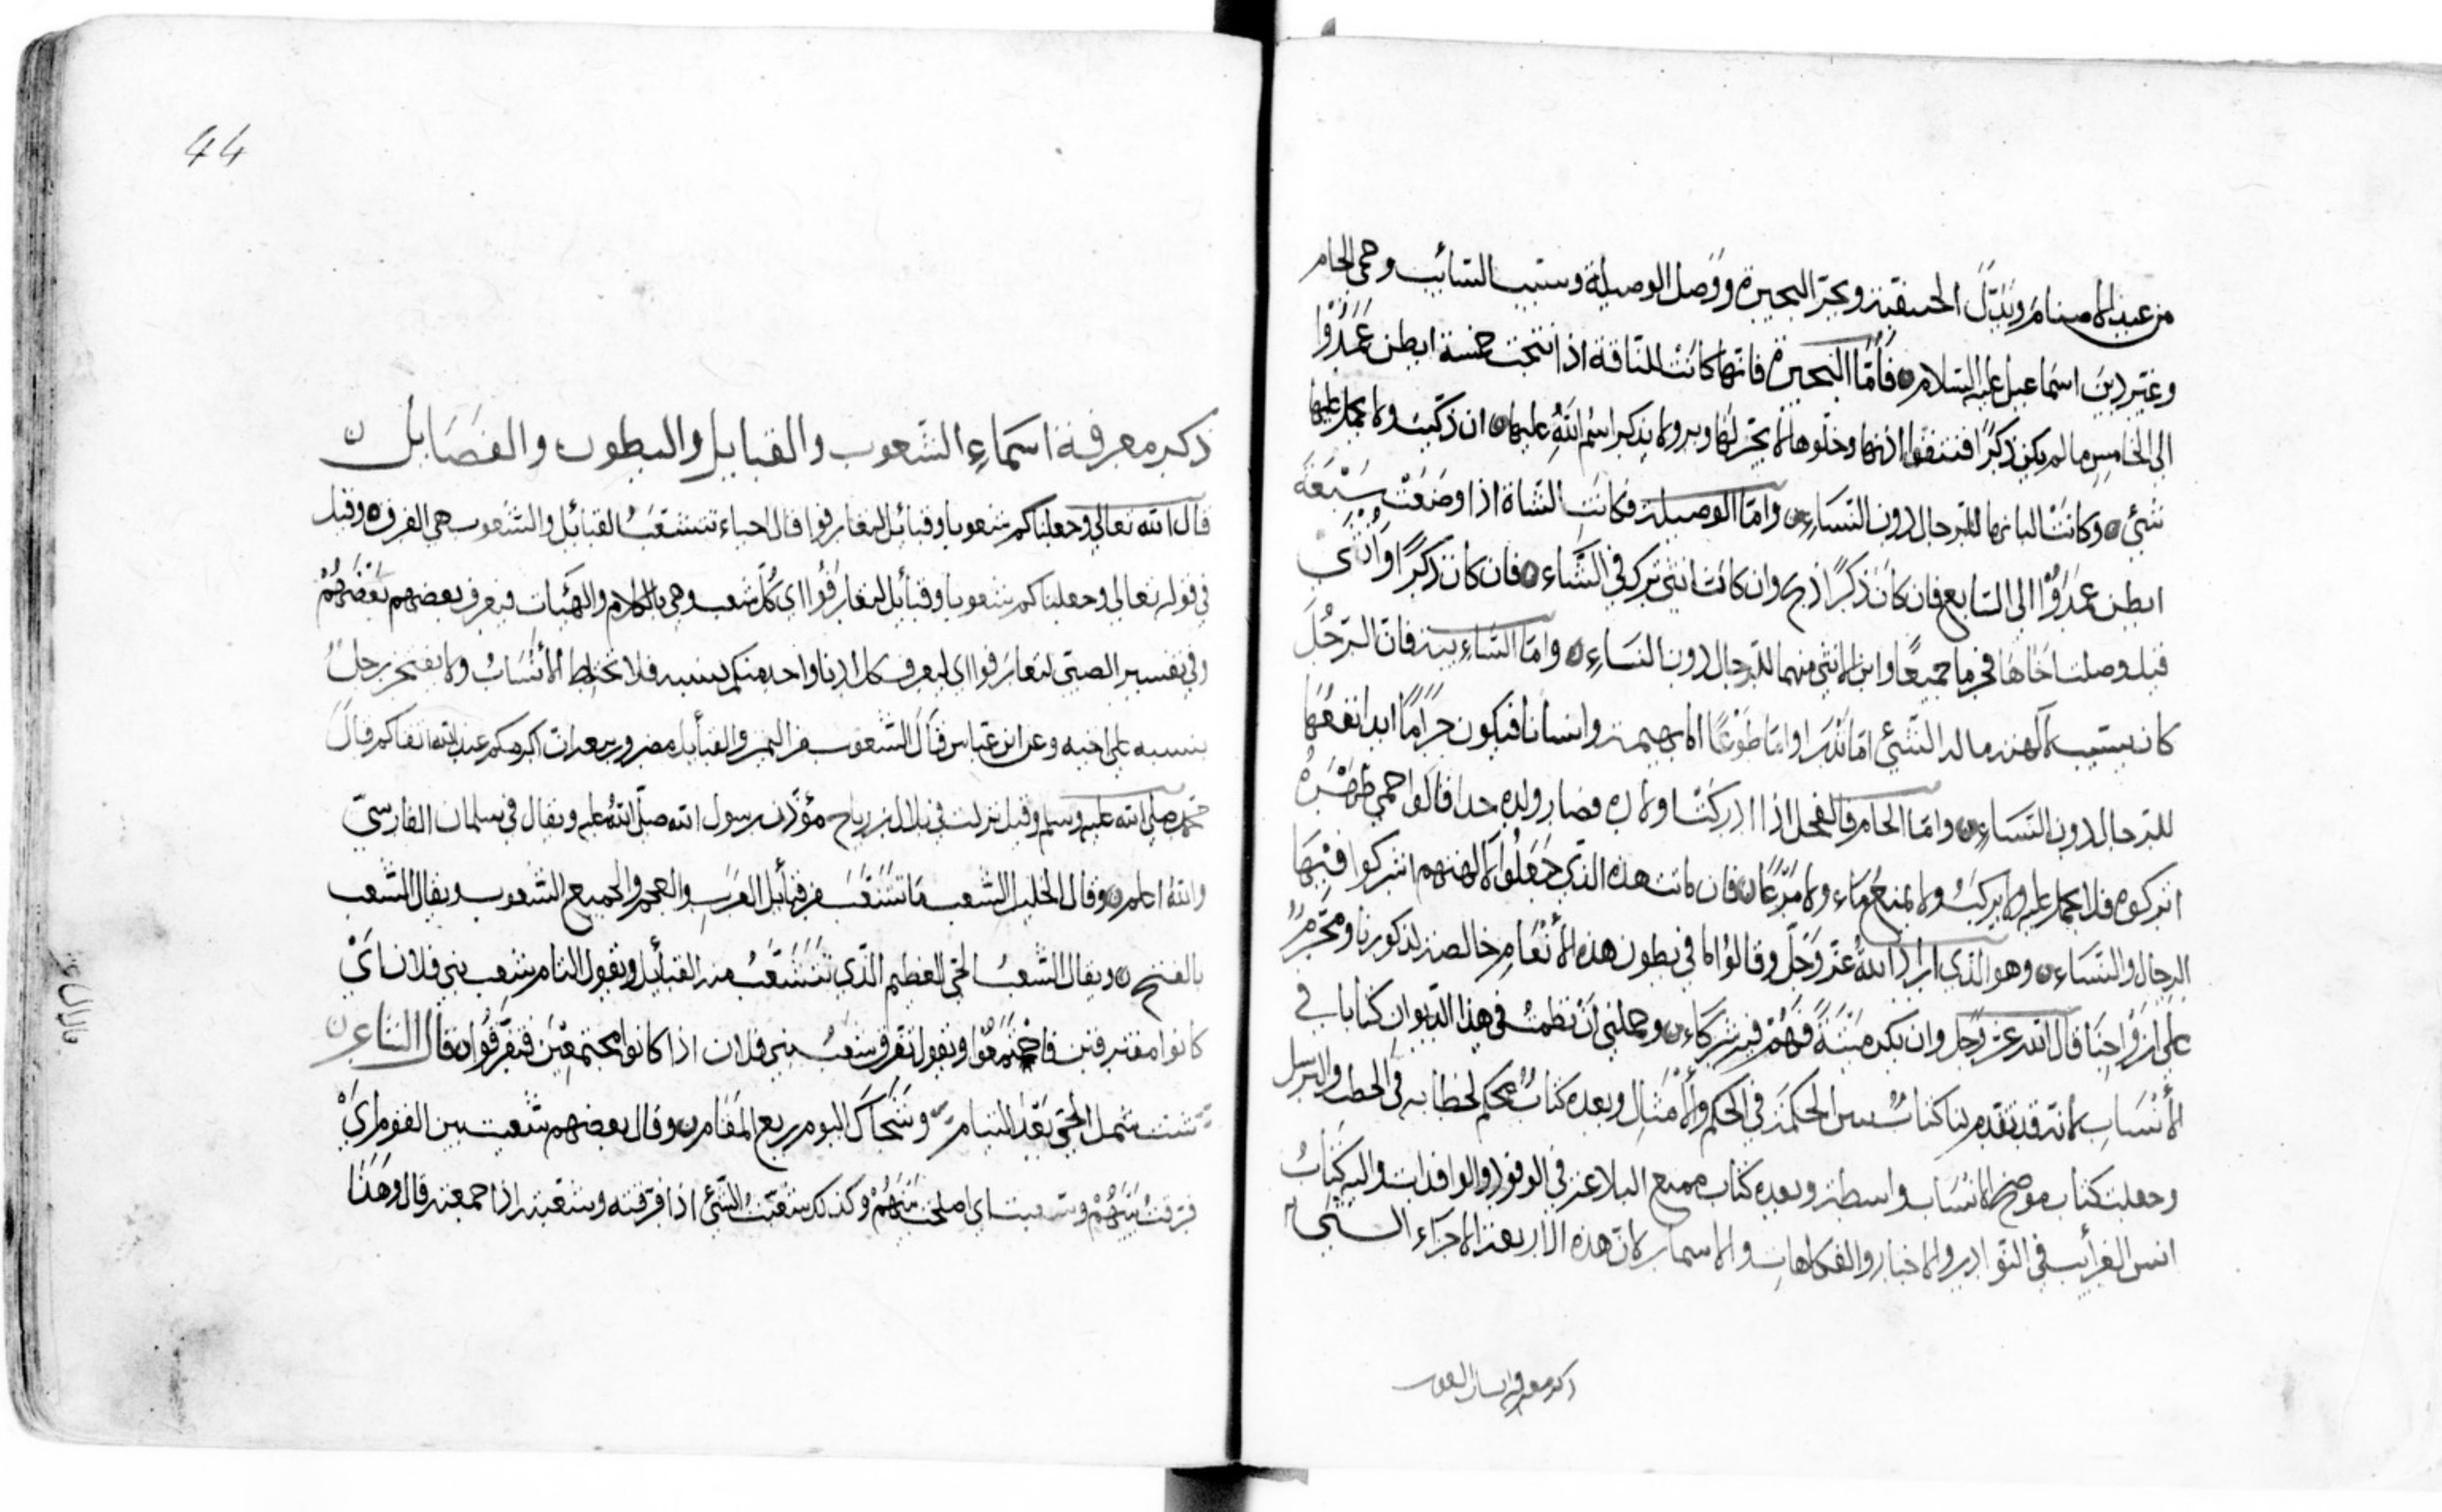 من عبد الاصنام وبَدَّلَ الحنيفية وبحّر البحيرة ووَصل الوصيلة وسيب السائب وحمى الحام
وغيّر دينَ اسماعيل عليه السلام فأمّا البحيرة فانها كانت الناقة اذا نتجت خمسة ابطن عَمَدُوْا
الى الخامس ما لم يكن ذكرًا فشقوا اذنها وخلّوها لا يجز لها وبر ولا يذكر اسْم اللهِ عليها ان ذكّيت ولا يحمل عليها
شئ وكانتْ البانها للرجال دون النسَاء وامّا الوصيلة فكانت الشاة اذا وضعَتْ سَبْعَة
ابطن عمَدُوْا الى السابع فان كانَ ذكرًا ذبح وان كانت انثى تركت في الشَّاء فان كان ذكرًا وانثى
قيل وصلت اخاهَا فحرما جميعًا وابن الانثى منهما للرجال دون النسَاءِ وامّا السَّاءِبة فان الرّجُلَ
كان يسيب لآلهته من ماله الشّئ امّا نَذرا وامّا طَوْعًا اما بهيمة وانسانا فيكون حرَامًا ابدا نفعُهَا
للرجال دون النسَاء وامّا الحام فالفحل اذا ادركَتْ اولاده فصار ولده جدا قالوا حمى ظهْرَهُ
اتركوه فلا يحمل عليه ولا يركبُ ولا يمنعُ مَاء ولا مَرْعًا فان ماتت هذه الذي جَعَلُوا لآلهتهم اشركوا فيْهَا
الرجال والنسَاء وهو الذي اراد اللهُ عزّ وَجَلّ وقالوُا ما في بطون هذه الأنْعَامِ خالصة لذكورنا ومحَرّمٌ
على ازوَاجِنَا قال الله عز وجل وان يكن ميْتَةً فَهُمْ فيه شرَكَاء وحملني أنْ نظمتُ في هذا الديوان كتابا في
الأنْسَابِ لانه قد تقدم لنا كتابُ الحكمة في الحكم والأمْثَالِ وبعده كتابُ محكم الخطابه في الخطب والترسل
وجعلت كتاب موضح الانسَاب واسطة وبعده كتاب ممتع البلاغة في الوفود والوافدات واليه كتابُ
انس الغرائب في النوادر والاخبار والفكاهات والاسمار لانّ هذه الاربعة الاجزاء
ذكر معرفة اسمَاءِ الشّعوب والقبايل والبطون والفصَايل
قال الله تعالى وجعلناكم شعوبا وقبائل لتعارفوا قال احياء تتشعّبُ القبائل والشعوب هي الفرق وقيل
في قوله تعالى وجعلناكم شعوبا وقبائل لتعارَفُوْا اي كلّ شعب وحي بالكلام والهيئات فيعرف بعضهم بَعْضَهُمْ
وفي تفسير لتعارَفوا اي ليعرف كل واحد منكم بنسبه فلا تختلط الأنسَابُ ولا يفتخر رجلٌ
بنسبه على اخيه وعن ابن عبّاس قَالَ الشّعوب من اليمن والقبائل مضر وربيعة ان اكرمكم عند الله اتقاكم قالَ
محمّد صلى الله عليه وسلم وقيل نزلت في بلال بن رباح مؤذن رسول الله صلّى اللهُ عليه ويقال في سلمان الفارسيّ
واللهُ اعلم وقال الخليل الشّعب مَا تشَعّبَ من قبائل العرَبِ والعجم والجميع الشعوب ويقال الشّعب
بالفتح ويقال الشّعبُ الحيّ العظيم الذّي تتشعّبُ منه القبائل ويقول التام شعب بني فلان ايْ
كانوا مفترقين فاجتَمَعُوْا ويقول تفرّق شعبُ بني فلان اذا كانوا مجتمعَيْن فتفَرَّقُوْا قال الشاعر
شتّ شمل الحيّ بَعْدَ التيَام وشَجَاكَ اليوم ربع المقَام وقال بعضهم شعبت بين القوم ايْ
فرقتُ بَيْنَهُمْ وشعبت اي اصلحت بَيْنَهُمْ وكذلك شعّبتُ الشئ اذا فرقته وشعّبته اذا جمعته قال وهَذا
ذكر معرفة اسماء الشعوب
44